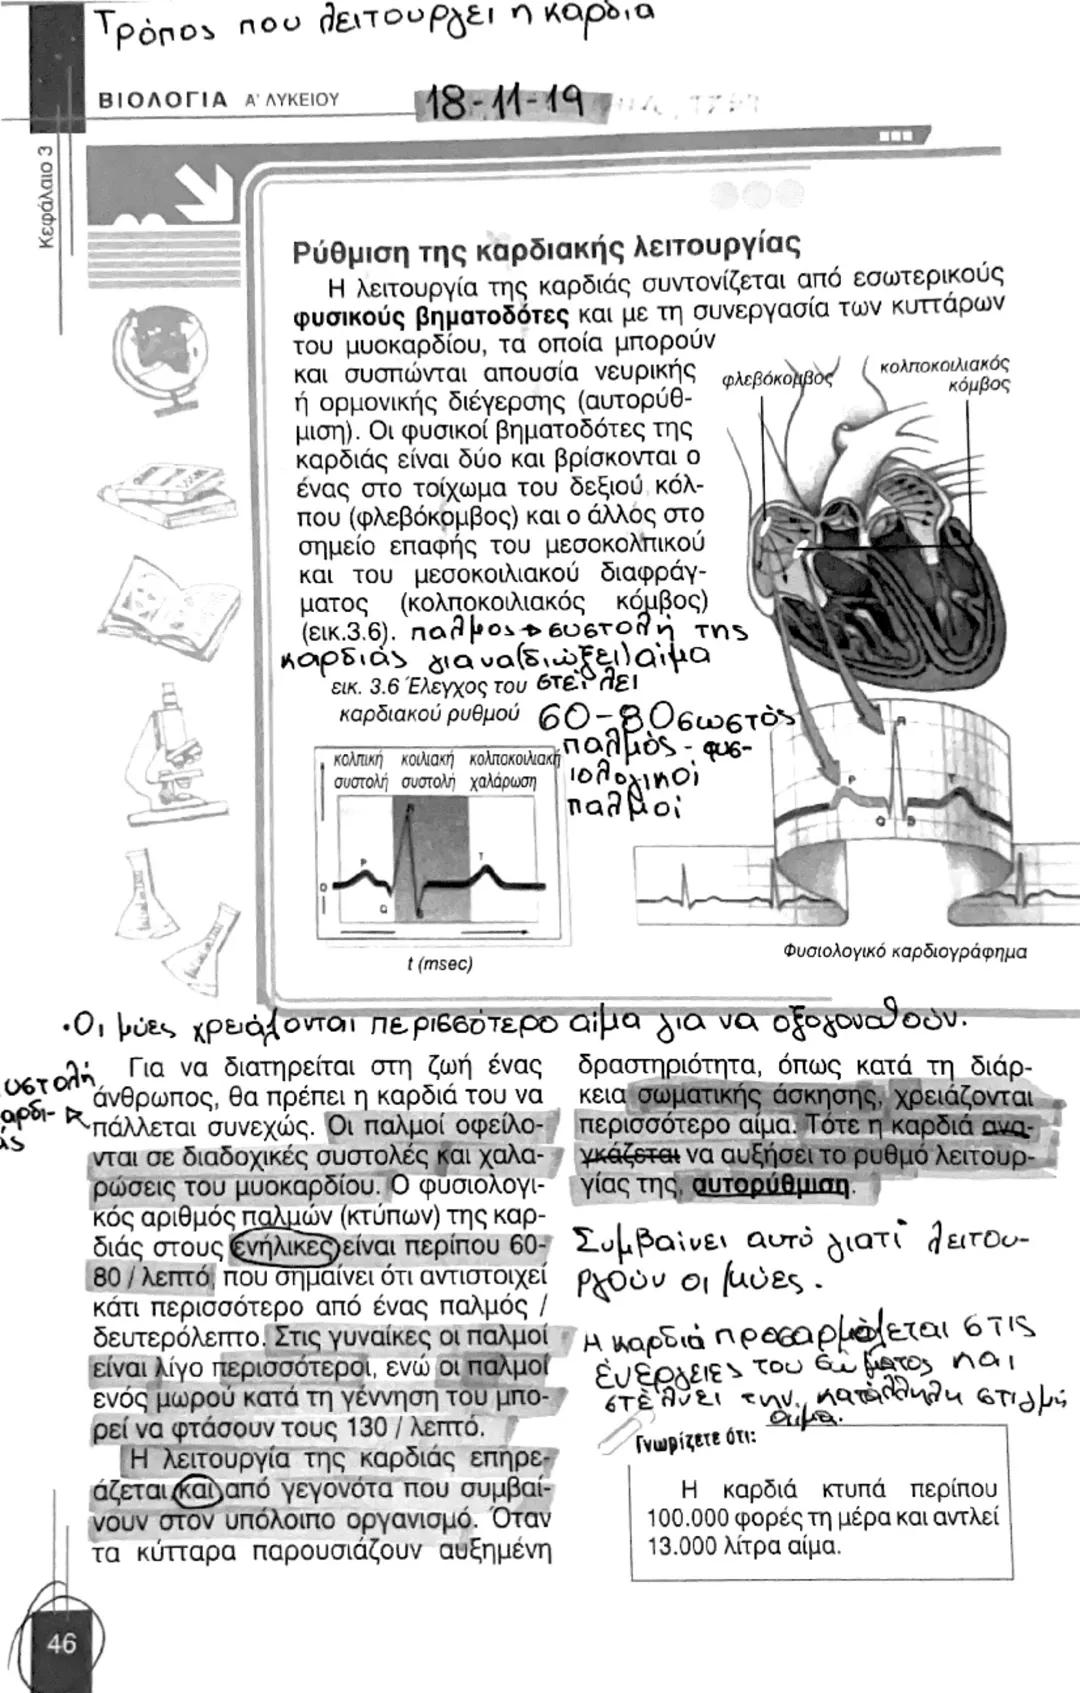 Τρόπος που λειτουργεί η καρδιά
ΒΙΟΛΟΓΙΑ Α' ΛΥΚΕΙΟΥ
18-11-19
Κεφάλαιο 3
Ρύθμιση της καρδιακής λειτουργίας
Η λειτουργία της καρδιάς συντονίζεται από εσωτερικούς
φυσικούς βηματοδότες και με τη συνεργασία των κυττάρων
του μυοκαρδίου, τα οποία μπορούν
και συσπώνται απουσία νευρικής
ή ορμονικής διέγερσης (αυτορύθ-
μιση). Οι φυσικοί βηματοδότες της
καρδιάς είναι δύο και βρίσκονται ο
ένας στο τοίχωμα του δεξιού κόλ-
που (φλεβόκομβος) και ο άλλος στο
σημείο επαφής του μεσοκολπικού
και του μεσοκοιλιακού διαφράγ-
ματος (κολποκοιλιακός κόμβος)
(εικ.3.6).
παλμος → συστολή της
καρδιάς για να (διώξει) αίμα
στείλει
εικ. 3.6 Έλεγχος του
καρδιακού ρυθμού
60-80 σωστός
παλμός - φυσ-
ιολογικοί
παλμοί
φλεβόκομβος
κολποκοιλιακός
κόμβος
κολπική συστολή
κοιλιακή συστολή
κολποκοιλιακή χαλάρωση
P
R
T
Q
t (msec)
R
P
T
Q
Φυσιολογικό καρδιογράφημα
•Οι μύες χρειάζονται περισσότερο αίμα για να οξογονωθούν.
Για να διατηρείται στη ζωή ένας
άνθρωπος, θα πρέπει η καρδιά του να
πάλλεται συνεχώς. Οι παλμοί οφείλο-
νται σε διαδοχικές συστολές και χαλα-
ρώσεις του μυοκαρδίου. Ο φυσιολογι-
κός αριθμός παλμών (κτύπων) της καρ-
διάς στους ενήλικες είναι περίπου 60-
80 / λεπτό, που σημαίνει ότι αντιστοιχεί
κάτι περισσότερο από ένας παλμός /
δευτερόλεπτο. Στις γυναίκες οι παλμοί
είναι λίγο περισσότεροι, ενώ οι παλμοί
ενός μωρού κατά τη γέννηση του μπο-
ρεί να φτάσουν τους 130 / λεπτό.
Η λειτουργία της καρδιάς επηρε-
άζεται και από γεγονότα που συμβαί-
νουν στον υπόλοιπο οργανισμό. Όταν
τα κύτταρα παρουσιάζουν αυξημένη
δραστηριότητα, όπως κατά τη διάρ-
κεια σωματικής άσκησης, χρειάζονται
περισσότερο αίμα. Τότε η καρδιά ανα-
γκάζεται να αυξήσει το ρυθμό λειτουρ-
γίας της, αυτορύθμιση.
Συμβαίνει αυτό γιατί λειτου-
ργούν οι μύες.
Η καρδιά προσαρμόζεται στις
ένέργειες του σώματος και
στέλνει την κατάλληλη στιγμή
αίμα.
Γνωρίζετε ότι:
Η καρδιά κτυπά περίπου
100.000 φορές τη μέρα και αντλεί
13.000 λίτρα αίμα.
46